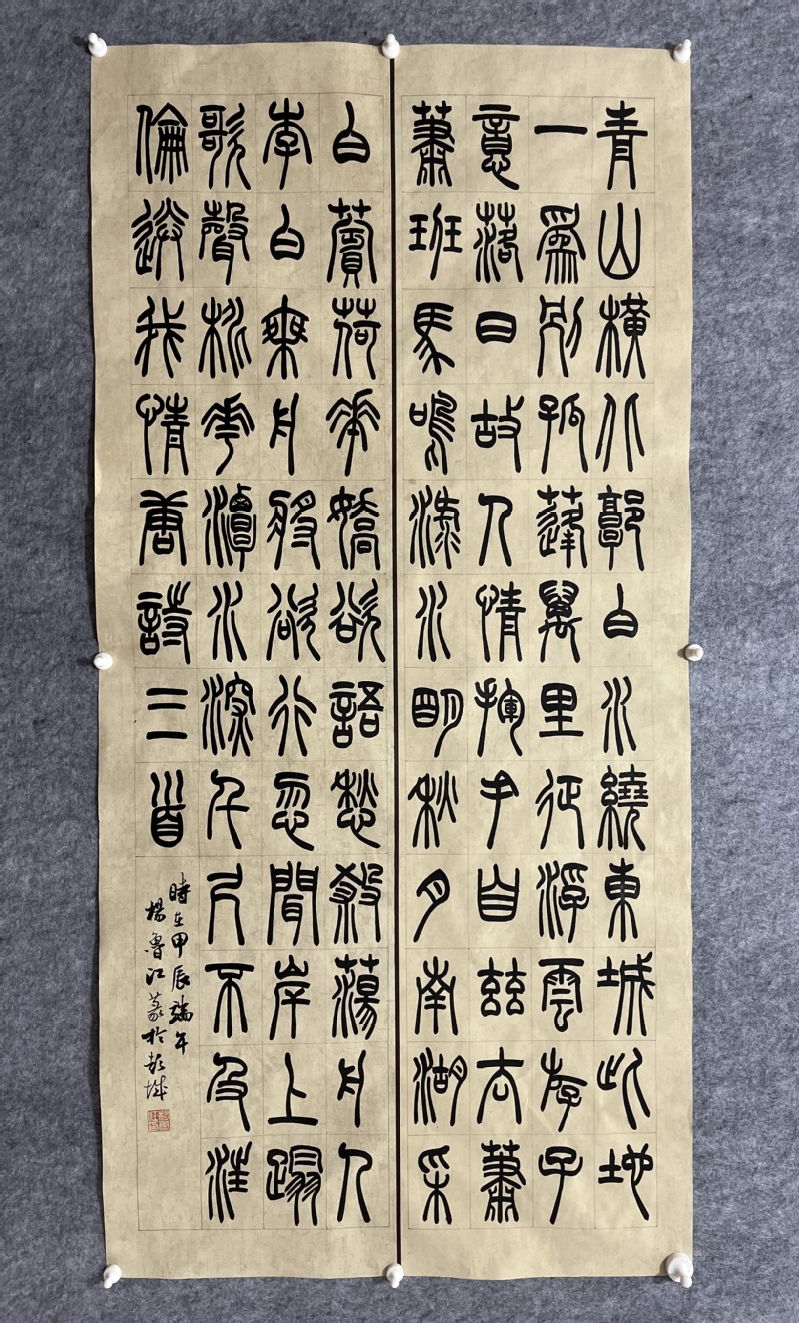 青山橫北郭白水繞東城此地
一為別孤蓬萬里征浮雲游子
意落日故人情揮手自茲去蕭
蕭班馬鳴淥水明秋月南湖采
白薲荷花嬌欲語愁殺蕩舟人
李白乘舟將欲行忽聞岸上蹋
歌聲桃花潭水深千尺不及汪
倫送我情唐詩三首
時在甲辰端午
楊魯江篆於彭城